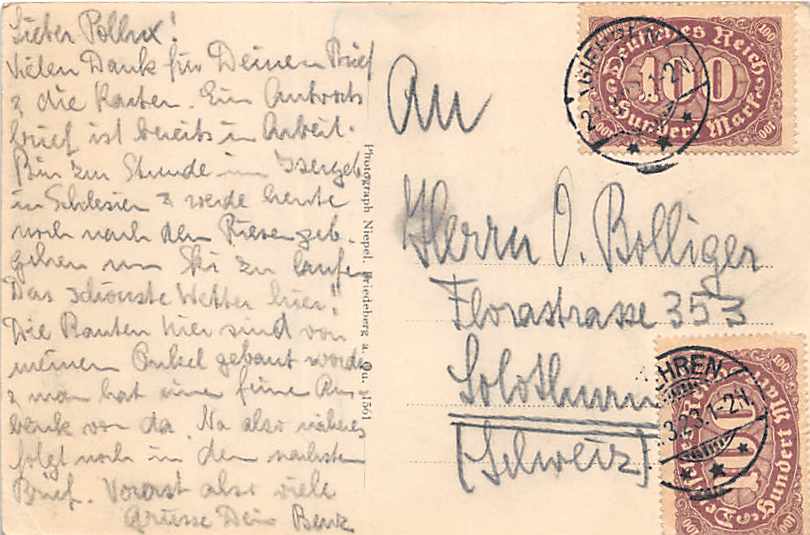 Lieber Pollux!
Vielen Dank für Deinen Brief
& die Karten. Ein Antwort-
brief ist bereits in Arbeit.
Bin zur Stunde im Isergeb.
in Schlesien & werde heute
noch nach dem Riesengeb.
gehen um Ski zu laufen
Das schönste Wetter hier!
Die Bauten hier sind von
meinem Onkel gebaut worden
& man hat eine feine Aus-
von da. Na also näheres
folgt noch in dem nächsten
Brief. Vorerst also viele
Grüsse Dein
Photograph Niepel, Friedeberg a. Qu. 1561
An
Herrn O. Bolliger
Florastrasse 353
Solothurn
(Schweiz)
Deutsches Reich
100
Hundert Mark
100
100
1-2N
EHREN
.3.23.1-2N.
100
Hundert Mark
100